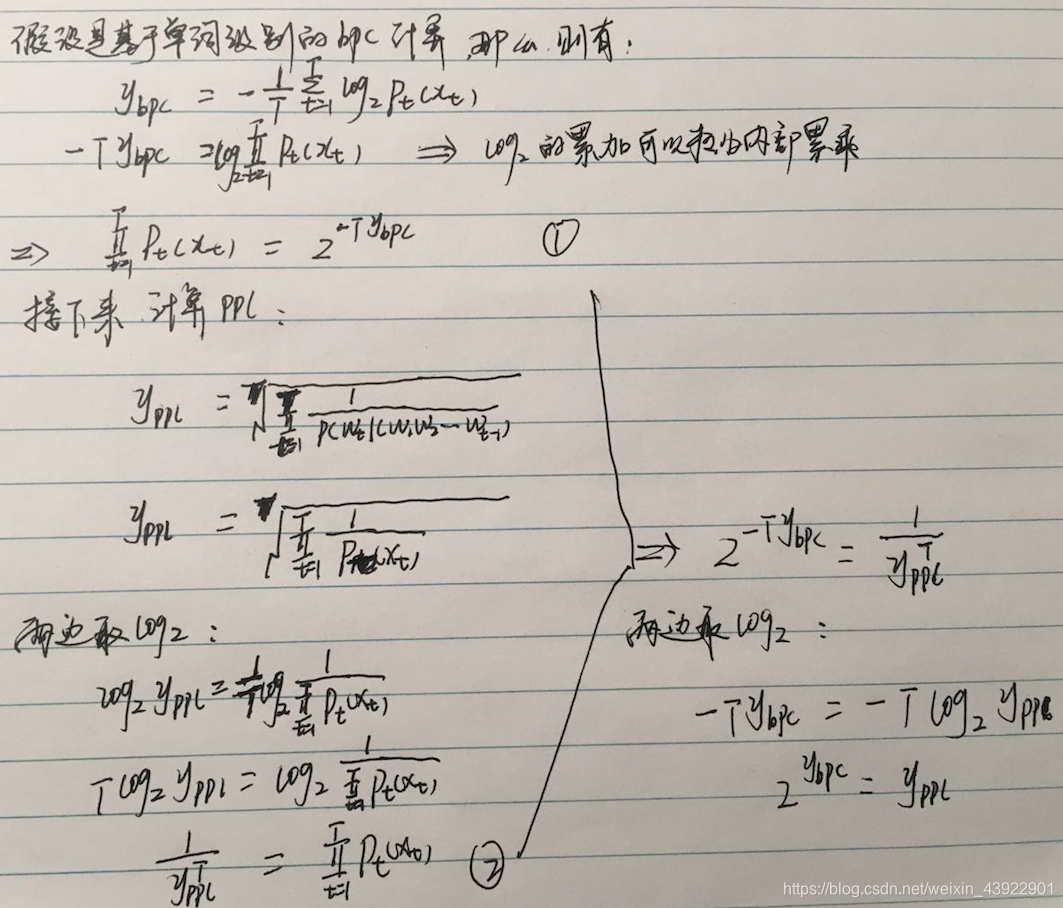 假设是基于单词级别的bpc计算,那么,则有:
y_bpc = -1/T Σ_{t=1}^{T} log₂ P_t(x_t)
-T y_bpc = log₂ ∏_{t=1}^{T} P_t(x_t) ⇒ log₂的累加可以拉为内部累乘
⇒ ∏_{t=1}^{T} P_t(x_t) = 2^{-T y_bpc} ①
接下来,计算PPL:
y_PPL = \sqrt[T]{∏_{t=1}^{T} 1/P(w_t|(w₁w₂...w_{t-1})}
y_PPL = \sqrt[T]{∏_{t=1}^{T} 1/P_t(x_t)}
两边取log₂:
log₂ y_PPL = 1/T log₂ 1/∏_{t=1}^{T} P_t(x_t)
T log₂ y_PPL = log₂ 1/∏_{t=1}^{T} P_t(x_t)
1/y_PPL^T = ∏_{t=1}^{T} P_t(x_t) ②
⇒ 2^{-T y_bpc} = 1/y_PPL^T
两边取log₂:
-T y_bpc = -T log₂ y_PPL
2^{y_bpc} = y_PPL
https://blog.csdn.net/weixin_43922901